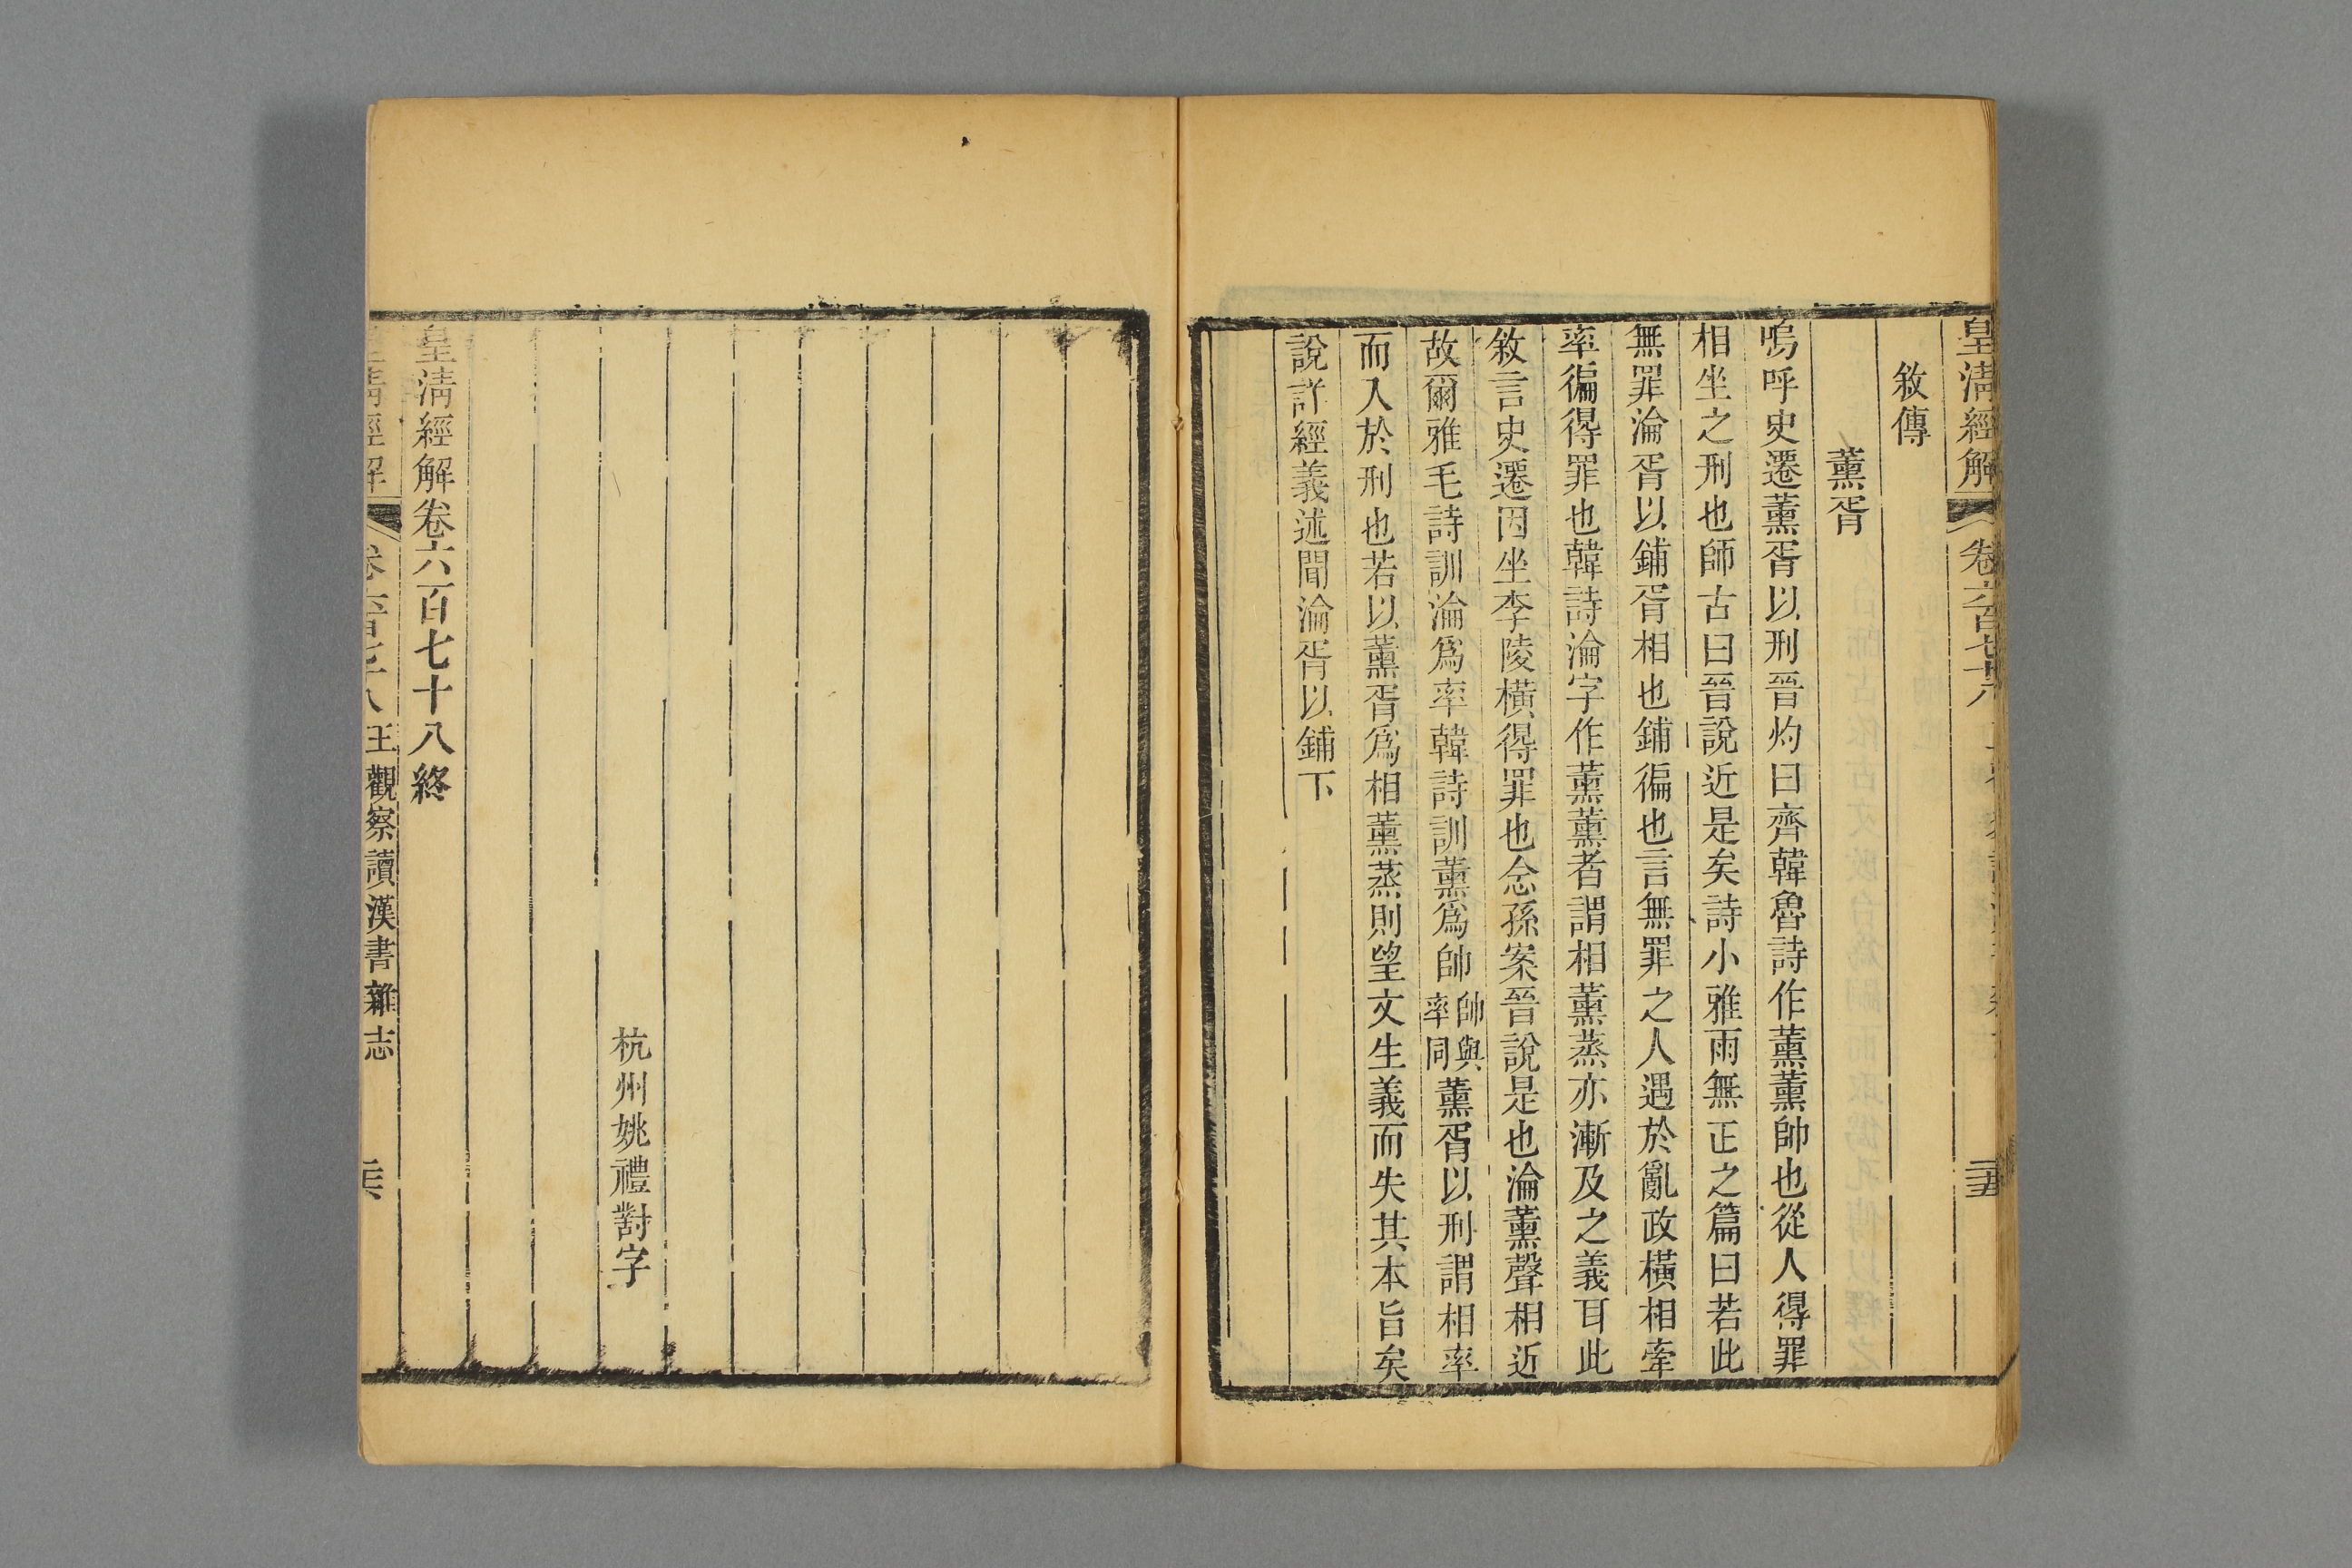 皇清經解
卷六百七十八
敘傳
薰胥
嗚呼史遷薰胥以刑晉灼曰齊韓魯詩作薰薰帥也從人得罪
相坐之刑也師古曰晉說近是矣詩小雅雨無正之篇曰若此
無罪淪胥以鋪胥相也鋪徧也言無罪之人遇於亂政橫相牽
率徧得罪也韓詩淪字作薰薰者謂相薰蒸亦漸及之義耳此
敘言史遷因坐李陵橫得罪也念孫案晉說是也淪薰聲相近
故爾雅毛詩訓淪爲率韓詩訓薰爲帥帥與率同薰胥以刑謂相率
而入於刑也若以薰胥爲相薰蒸則望文生義而失其本旨矣
說詳經義述聞淪胥以鋪下
杭州姚禮對字
皇清經解卷六百七十八終
皇清經解
卷六百七十八
王觀察讀漢書雜志